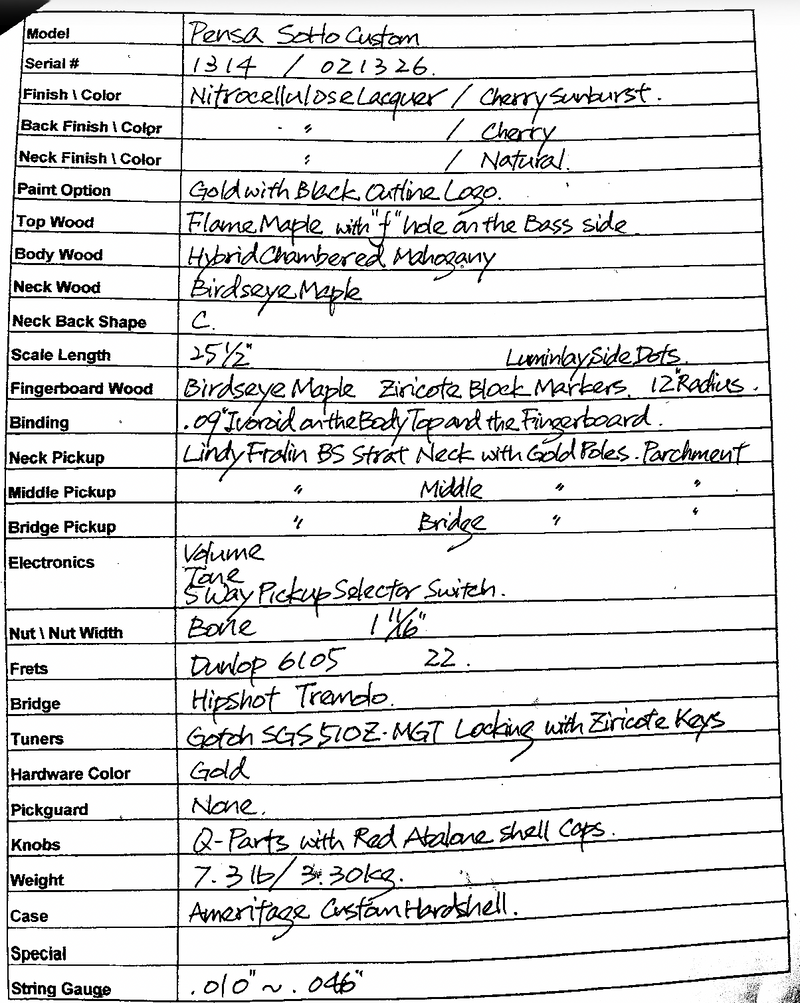 Model Pensa Sotto Custom
Serial # 1314 / 021326.
Finish \ Color Nitrocellulose Lacquer / Cherry Sunburst.
Back Finish \ Color 〃 / Cherry
Neck Finish \ Color 〃 / Natural.
Paint Option Gold with Black Outline Logo.
Top Wood Flame Maple with "f" hole on the Bass side
Body Wood Hybrid Chambered Mahogany
Neck Wood Birdseye Maple
Neck Back Shape C.
Scale Length 25 1/2" Luminlay Side Dots.
Fingerboard Wood Birdseye Maple Ziricote Block Markers. 12" Radius.
Binding .09" Ivoroid on the Body Top and the Fingerboard.
Neck Pickup Lindy Fralin BS Strat Neck with Gold Poles. Parchment
Middle Pickup 〃 Middle 〃 〃
Bridge Pickup 〃 Bridge 〃 〃
Electronics Volume
Tone
5 Way Pickup Selector Switch.
Nut \ Nut Width Bone 1 11/16"
Frets Dunlop 6105 22.
Bridge Hipshot Tremolo.
Tuners Gotoh SGS510Z-MGT Locking with Ziricote Keys
Hardware Color Gold
Pickguard None.
Knobs Q-Parts with Red Abalone Shell Caps.
Weight 7.3 lb / 3.30kg.
Case Ameritage Custom Hardshell.
Special
String Gauge .010" ~ .046"